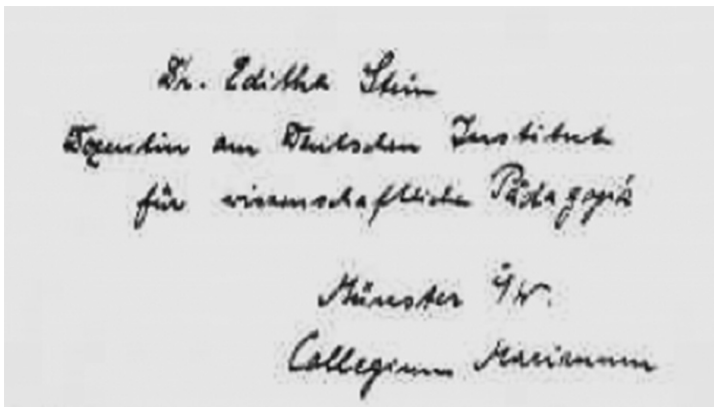 Dr. Editha Stein
Dozentin am Deutschen Institut
für wissenschaftliche Pädagogik
Münster i/W.
Collegium Marianum